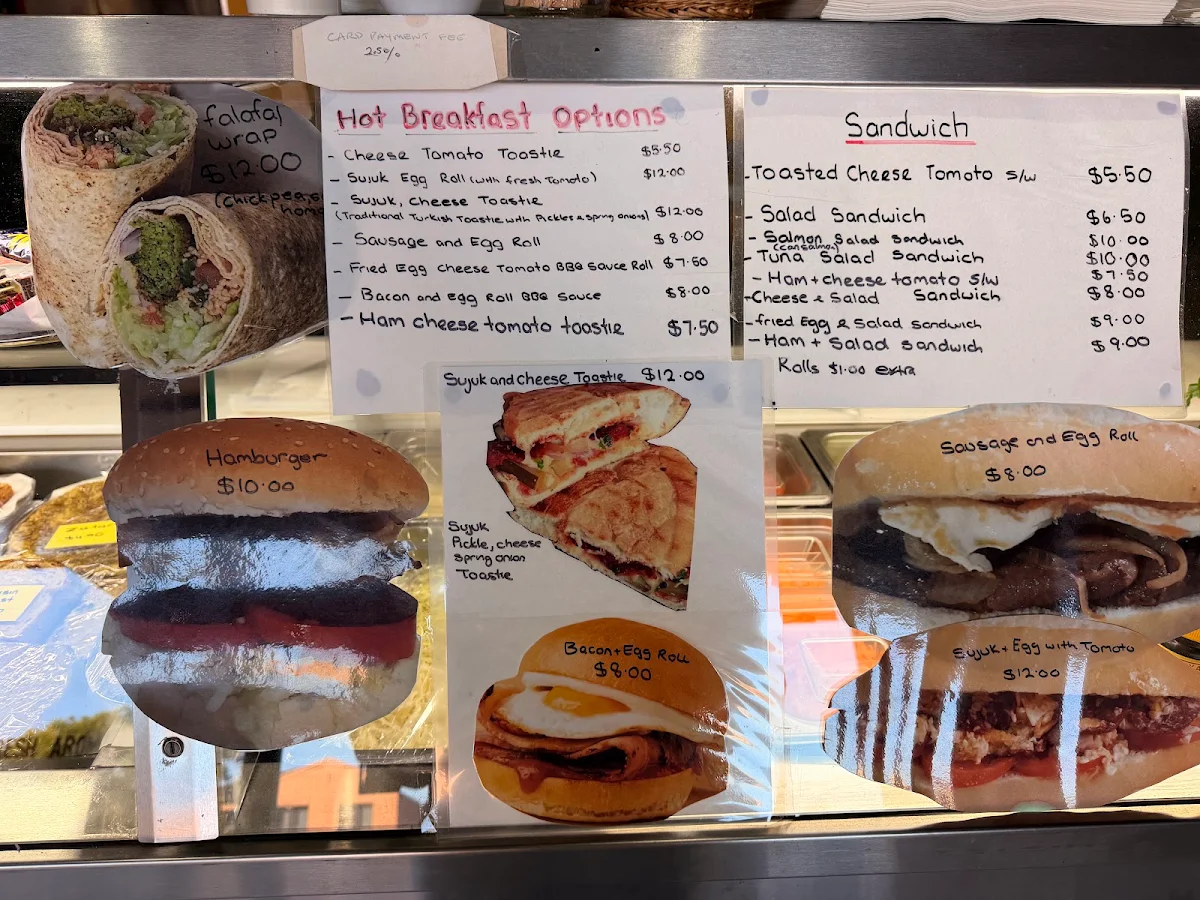 CARD PAYMENT FEE
2.50%
falafal
wrap
$12.00
(chickpea,s
Hot Breakfast Options
- Cheese Tomato Toastie $5.50
- Sujuk Egg Roll (with fresh Tomato) $12.00
- Sujuk, Cheese Toastie
(Traditional Turkish Toastie with Pickles & spring onions) $12.00
- Sausage and Egg Roll $8.00
- Fried Egg Cheese Tomato BBQ Sauce Roll $7.50
- Bacon and egg Roll BBQ Sauce $8.00
- Ham cheese tomato toastie $7.50
Sandwich
- Toasted Cheese Tomato s/w $5.50
- Salad Sandwich $6.50
- Salmon Salad Sandwich $10.00
(can salmon)
- Tuna Salad Sandwich $10.00
- Ham + cheese tomato S/W $7.50
- Cheese & Salad Sandwich $8.00
- fried Egg & Salad sandwich $9.00
- Ham + Salad sandwich $9.00
Rolls $1.00 extra
Sujuk and cheese Toastie $12.00
Sujuk
Pickle, cheese
spring onion
Toastie
Hamburger
$10.00
Bacon + Egg Roll
$8.00
Sausage and Egg Roll
$8.00
Sujuk + Egg with Tomato
$12.00